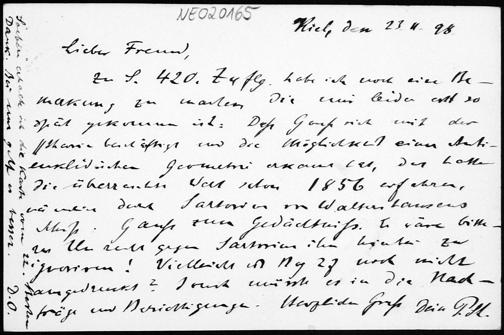 NEO20165
Kiel, den 23 II. 98
Lieber Freund,
Zu S. 420. Z. 4 flg. habe ich noch eine Be-
merkung zu machen, die mir leider erst so
spät gekommen ist: Daß Gauß sich mit der
Theorie beschäftigt und die Möglichkeit einer Anti-
euklidischen Geometrie erkannt hat, das hatte
die überraschte Welt schon 1856 erfahren,
nämlich durch Sartorius von Waltershausens
Schrift. Gauss zum Gedächtniss. Es wäre bitte-
res Unrecht gegen Sartorius ihn hierbei zu
ignoriren! Vielleicht ist Bg 27 noch nicht
ausgedruckt? Sonst müsste es in die Nach-
träge und Berichtigungen. Herzlichen Gruss Dein P. St.
Dank. Bei uns geht es besser. D. O.